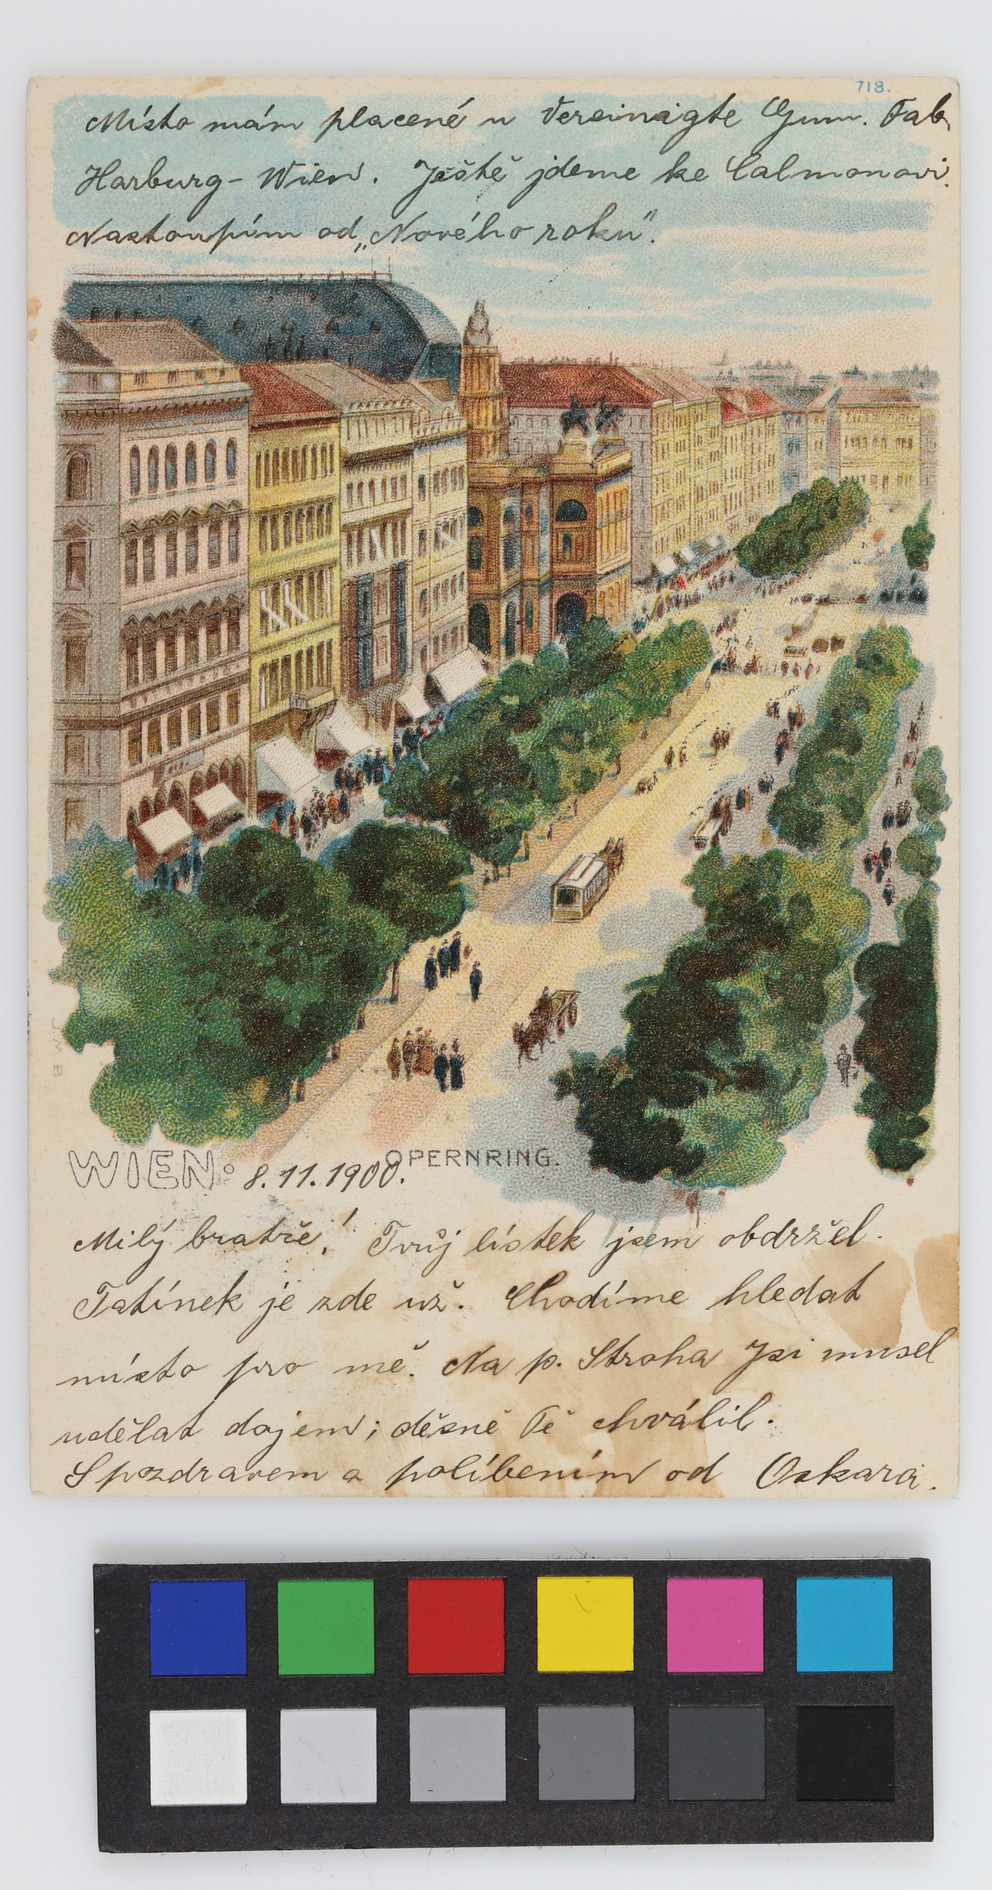 718.
Místo mám placené u Vereinigte Gum. Fab.
Harburg-Wien. Ještě jdeme ke Calmonovi.
Nastoupím od „Nového roku".
WIEN: 8.11.1900. OPERNRING.
Milý bratře! Tvůj lístek jsem obdržel.
Tatínek je zde už. Chodíme hledat
místo pro mě. Na p. Stroha Jsi musel
udělat dojem; děsně Tě chválil.
S pozdravem a políbením od Oskara.